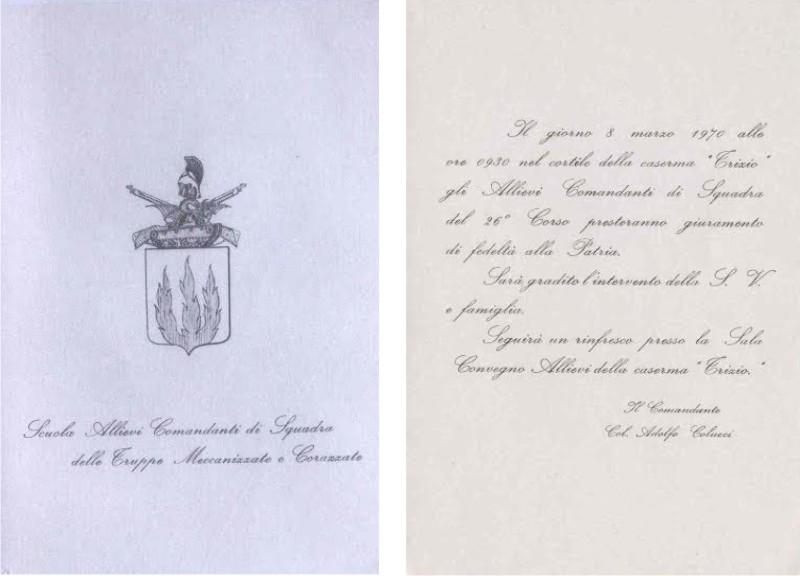 Scuola Allievi Comandanti di Squadra
delle Truppe Meccanizzate e Corazzate
Il giorno 8 marzo 1970 alle
ore 0930 nel cortile della caserma "Trizio"
gli Allievi Comandanti di Squadra
del 26° Corso presteranno giuramento
di fedeltà alla Patria.
Sarà gradito l'intervento della S. V.
e famiglia.
Seguirà un rinfresco presso la Sala
Convegno Allievi della caserma "Trizio."
Il Comandante
Col. Adolfo Colucci